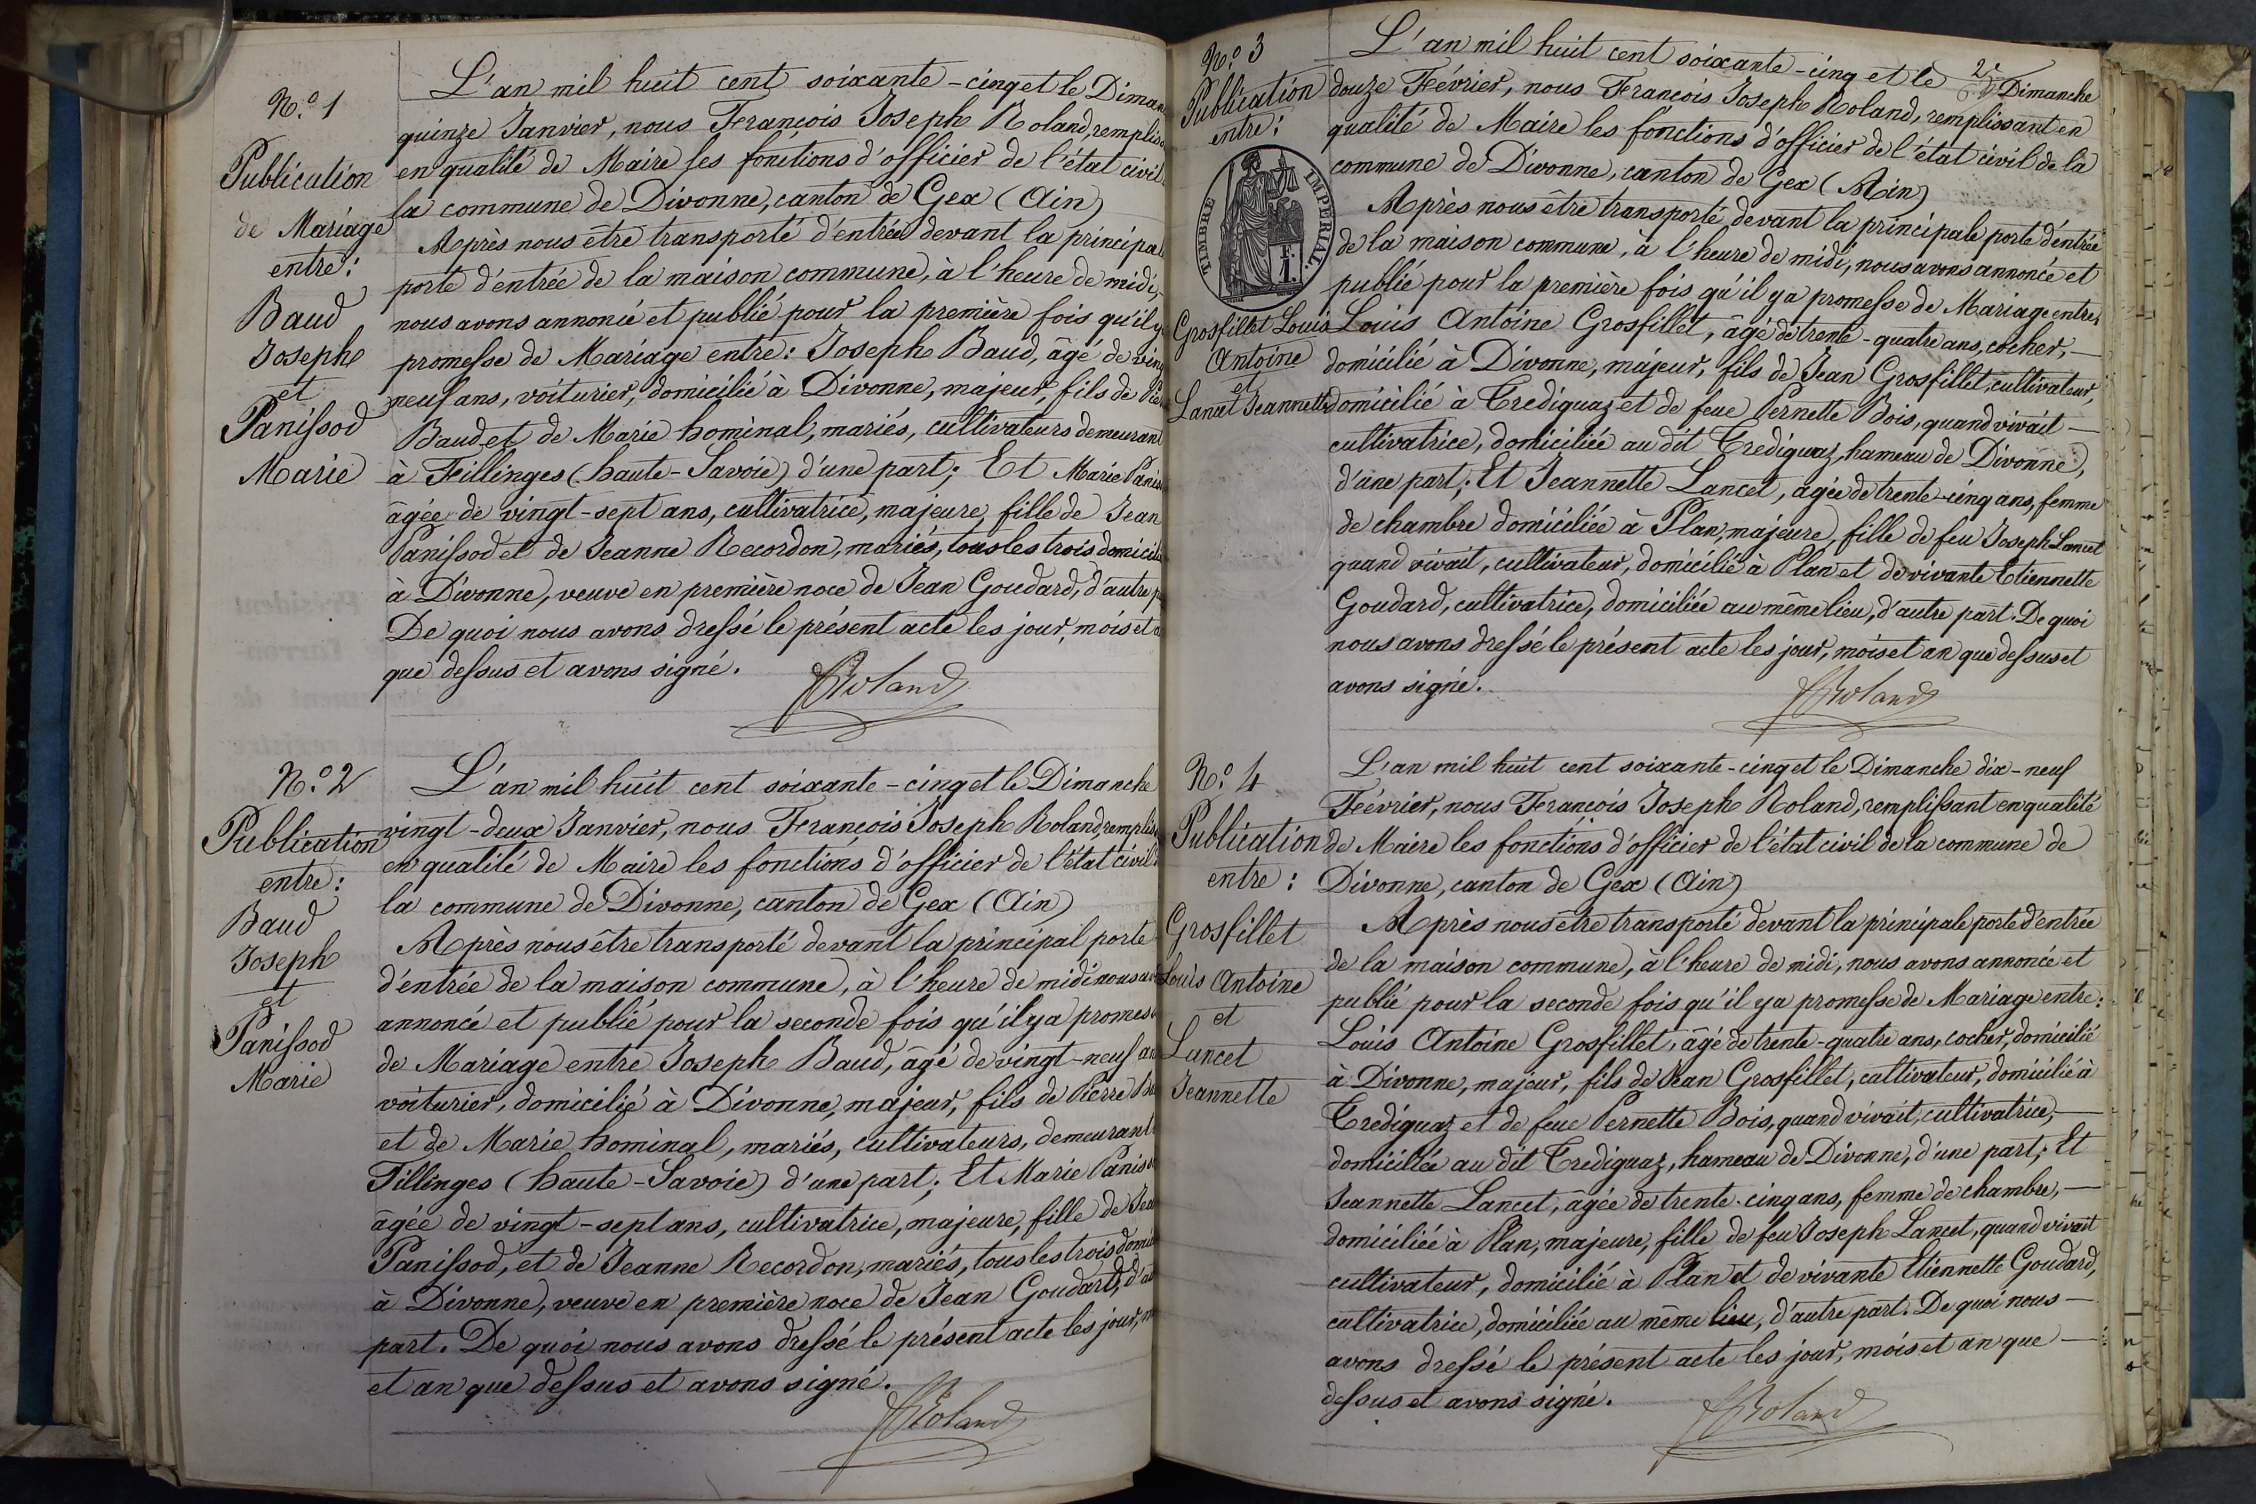 N.º 1
Publication
de Mariage
entre:
Baud
Joseph
et
Panissod
Marie
L'an mil huit cent soixante-cinq et le Diman
quinze Janvier, nous François Joseph Roland, remplis
en qualité de Maire les fonctions d'officier de l'état civil
la commune de Divonne, canton de Gex (Ain)
Après nous être transporté d'entrée devant la principa
porte d'entrée de la maison commune, à l'heure de midi,
nous avons annoncé et publié pour la première fois qu'il y
promesse de Mariage entre: Joseph Baud, âgé de ving
neuf ans, voiturier, domicilié à Divonne, majeur, fils de Pie
Baud et de Marie hominal, mariés, cultivateurs demeurant
à Fillinges (haute-Savoie) d'une part; Et Marie Panis
âgée de vingt-sept ans, cultivatrice, majeure, fille de Jean
Panissod et de Jeanne Recordon, mariés, tous les trois domicili
à Divonne, veuve en première noce de Jean Goudard, d'autre p
De quoi nous avons dressé le présent acte les jour, mois et a
que dessus et avons signé.
Roland
N.º 2
Publication
entre:
Baud
Joseph
et
Panissod
Marie
L'an mil huit cent soixante-cinq et le Dimanche
vingt-deux Janvier, nous François Joseph Roland, remplis
en qualité de Maire les fonctions d'officier de l'état civil
la commune de Divonne, canton de Gex (Ain)
Après nous être transporté devant la principal porte
d'entrée de la maison commune, à l'heure de midi nous av
annoncé et publié pour la seconde fois qu'il y a promes
de Mariage entre Joseph Baud, âgé de vingt-neuf an
voiturier, domicilié à Divonne, majeur, fils de Pierre
et de Marie hominal, mariés, cultivateurs, demeurant
Fillinges (haute-Savoie) d'une part; Et Marie Panis
âgée de vingt-sept ans, cultivatrice, majeure, fille de Jea
Panissod, et de Jeanne Recordon, mariés, tous les trois domic
à Divonne, veuve en première noce de Jean Goudard, d'au
part. De quoi nous avons dressé le présent acte les jour, m
et an que dessus et avons signé.
Roland
N.º 3
Publication
entre:
TIMBRE IMPERIAL.
1 F.
Grosfillet Louis
Antoine
et
Lancet Jeannette
L'an mil huit cent soixante-cinq et le Dimanche
douze Février, nous François Joseph Roland, remplissant en
qualité de Maire les fonctions d'officier de l'état civil de la
commune de Divonne, canton de Gex (Ain)
Après nous être transporté devant la principale porte d'entrée
de la maison commune, à l'heure de midi, nous avons annoncé et
publié pour la première fois qu'il y a promesse de Mariage entre,
Louis Antoine Grosfillet, âgé de trente-quatre ans, cocher,
domicilié à Divonne, majeur, fils de Jean Grosfillet, cultivateur,
domicilié à Crédiguaz et de feue Pernette Bois, quand vivait
cultivatrice, domiciliée au dit Crediguaz, hameau de Divonne,
d'une part; Et Jeannette Lancet, agée de trente-cinq ans, femme
de chambre domiciliée à Plan, majeure, fille de feu Joseph Lancet
quand vivait, cultivateur, domicilié à Plan et de vivante Etiennette
Goudard, cultivatrice, domiciliée au même lieu, d'autre part. De quoi
nous avons dressé le présent acte les jour, mois et an que dessus et
avons signé.
Roland
N.º 4
Publication
entre:
Grosfillet
Louis Antoine
et
Lancet
Jeannette
L'an mil huit cent soixante-cinq et le Dimanche dix-neuf
Février, nous François Joseph Roland, remplissant en qualité
de Maire les fonctions d'officier de l'état civil de la commune de
Divonne, canton de Gex (Ain)
Après nous être transporté devant la principale porte d'entrée
de la maison commune, à l'heure de midi, nous avons annoncé et
publié pour la seconde fois qu'il y a promesse de Mariage entre:
Louis Antoine Grosfillet, âgé de trente-quatre ans, cocher, domicilié
à Divonne, majeur, fils de Jean Grosfillet, cultivateur, domicilié à
Crediguaz et de feue Pernette Bois, quand vivait, cultivatrice,
domiciliée au dit Crediguaz, hameau de Divonne, d'une part; Et
Jeannette Lancet, agée de trente-cinq ans, femme de chambre,
domiciliée à Plan, majeure, fille de feu Joseph Lancet, quand vivait
cultivateur, domicilié à Plan et de vivante Etiennette Goudard,
cultivatrice, domiciliée au même lieu, d'autre part. De quoi nous
avons dressé le présent acte les jour, mois et an que
dessus et avons signé.
Roland